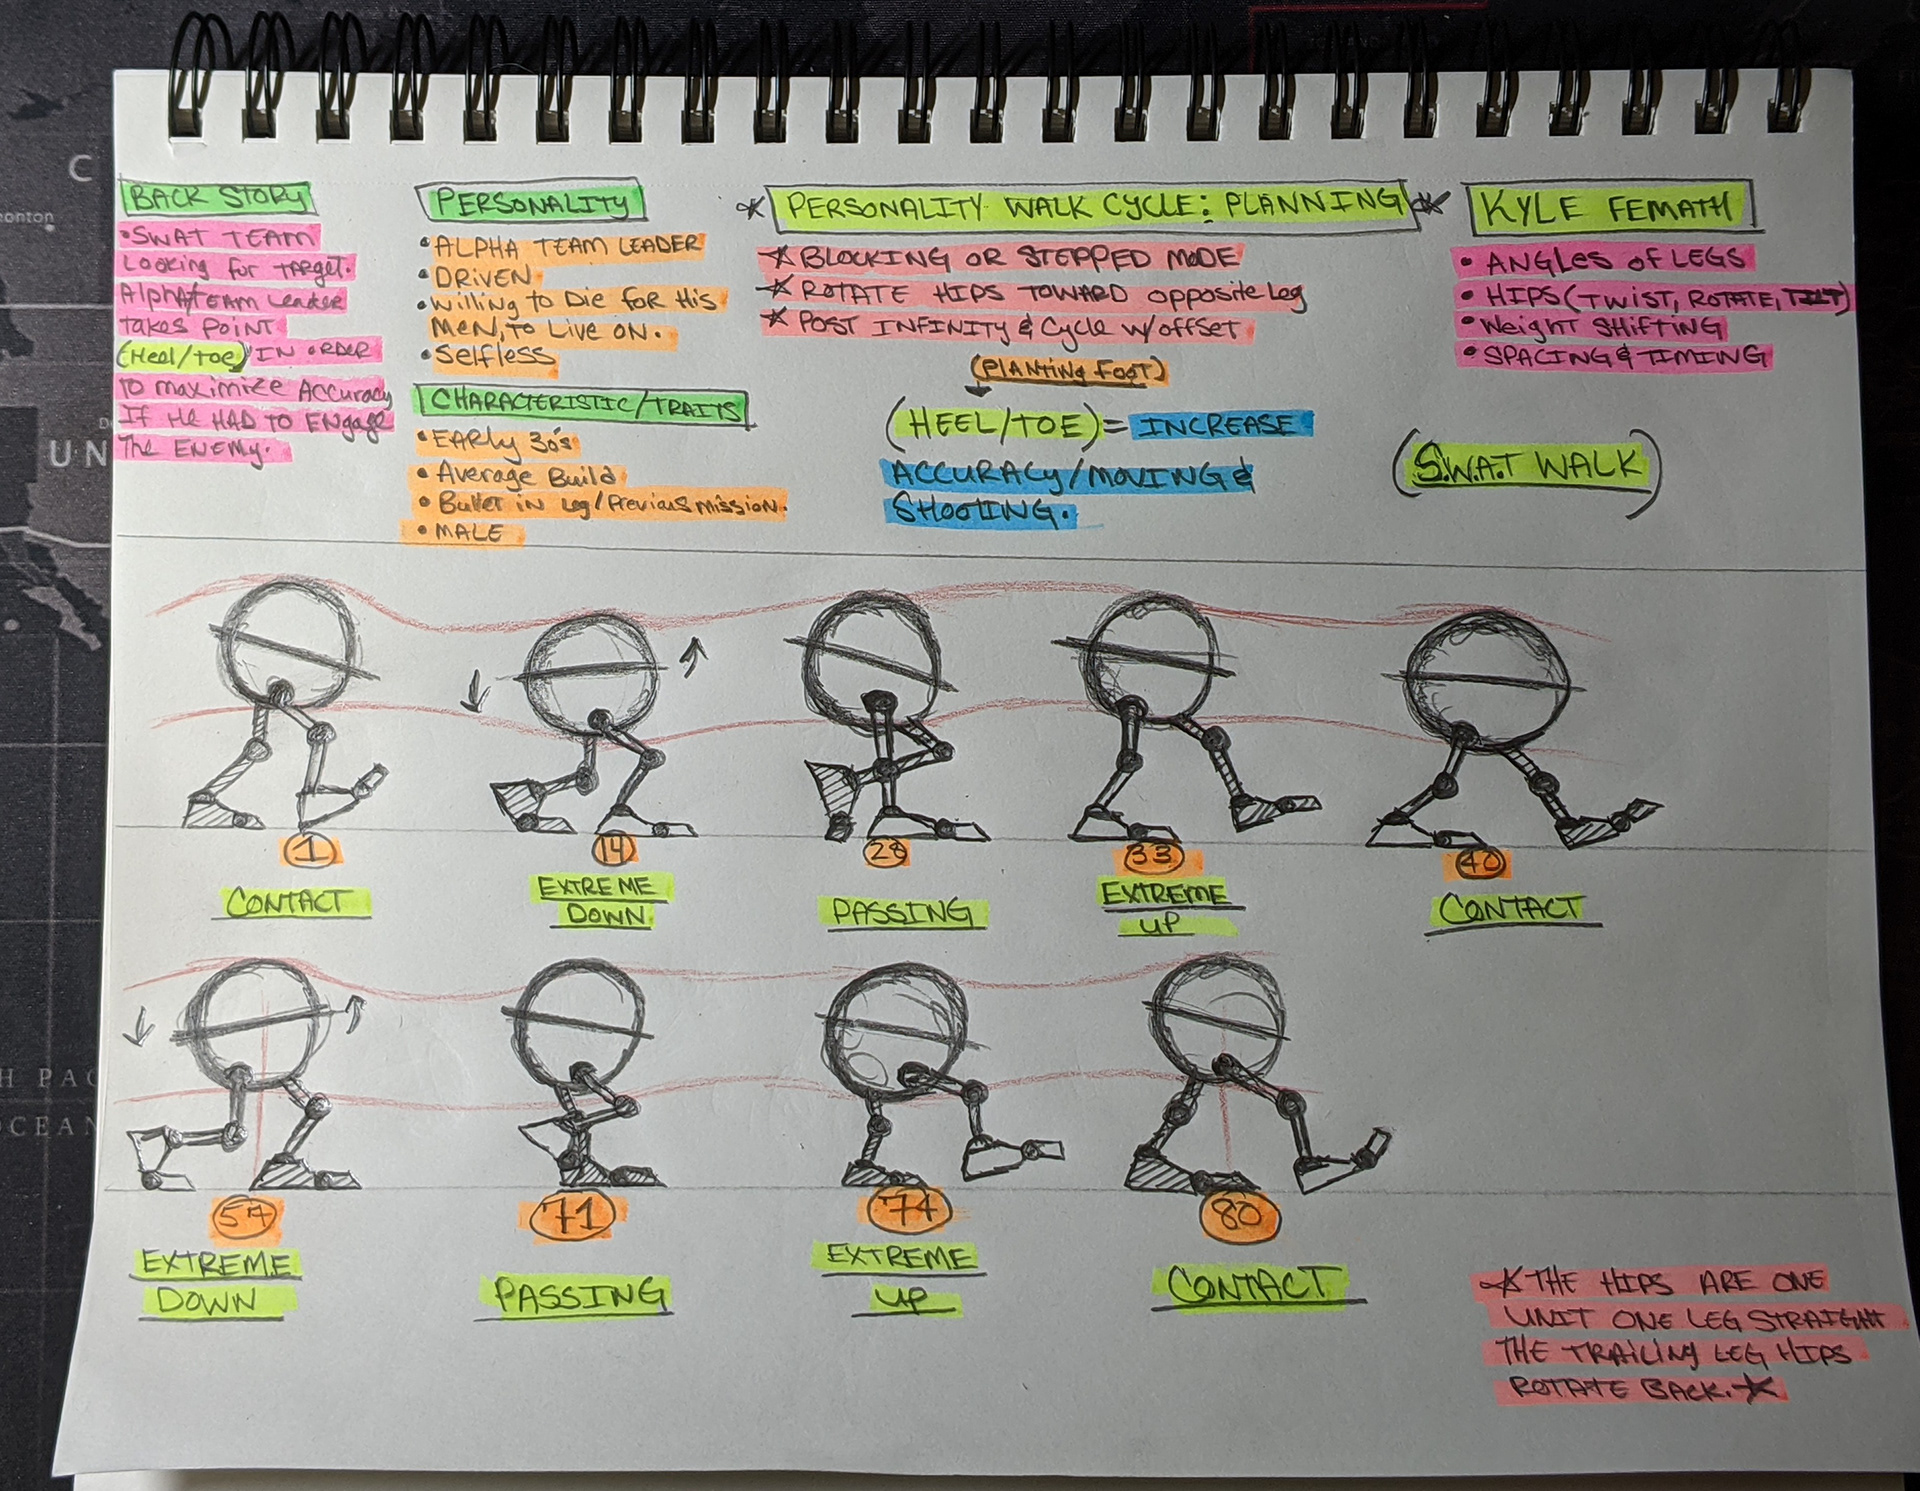 BACK STORY
• SWAT TEAM
Looking for TARget.
Alpha TEAM Leader
takes POINT
(Heel/TOE) IN ORDER
TO maximize Accuracy
IF HE HAD TO ENgage
The ENEMY.
PERSONALITY
• ALPHA TEAM LEADER
• DRIVEN
• Willing to Die for His
MEN, to Live ON.
• Selfless
CHARACTERISTIC/TRAITS
• EARLY 30's
• Average Build
• Bullet in Leg/Previous mission.
• MALE
* PERSONALITY WALK CYCLE: PLANNING *
* BLOCKING OR STEPPED MODE
* ROTATE HIPS TOWARD opposite Leg
* POST INFINITY & Cycle w/offset
(PLANTING FOOT)
(HEEL/TOE) = INCREASE
ACCURACY/MOVING &
SHOOTING.
KYLE FEMATH
• ANGLES of LEGS
• HIPS (TWIST, ROTATE, TILT)
• Weight SHIFTING
• SPACING & TIMING
(S.W.A.T WALK)
1
14
28
33
40
CONTACT
EXTREME
DOWN
PASSING
EXTREME
UP
CONTACT
71
74
80
EXTREME
DOWN
PASSING
EXTREME
UP
CONTACT
* THE HIPS ARE ONE
UNIT ONE LEG STRAIGHT
THE TRAILING LEG HIPS
ROTATE BACK. *
C
UN
OCEAN